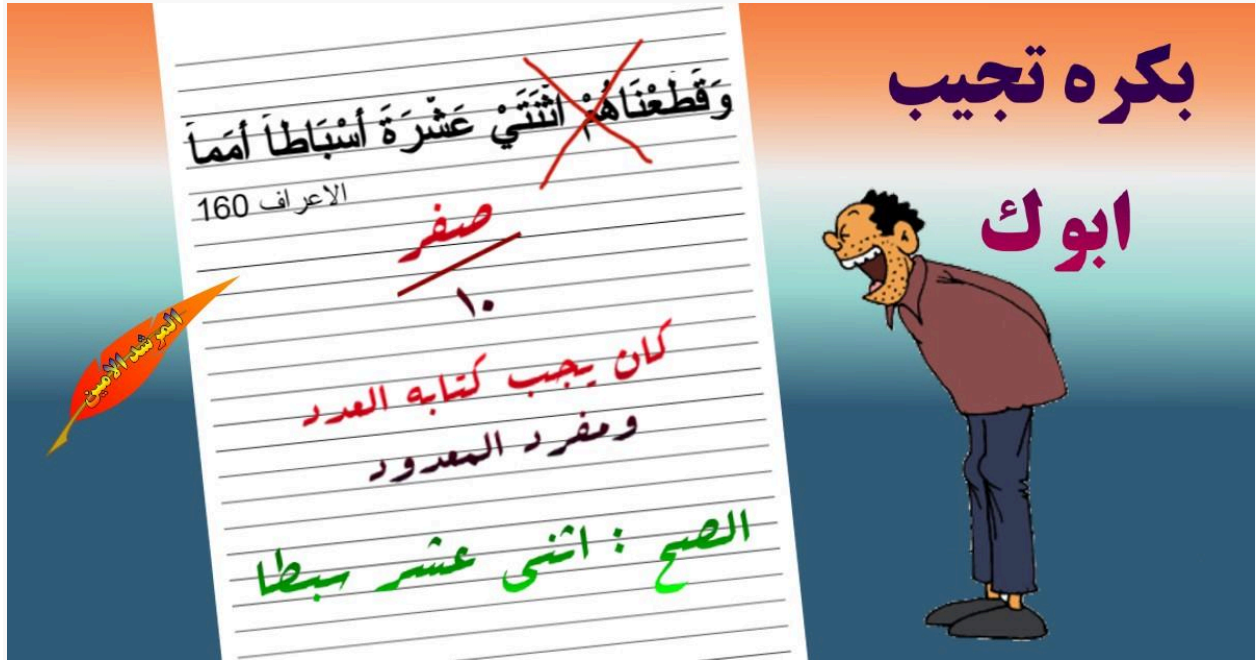 بكره تجيب
ابوك
وَقَطَّعْنَاهُمْ اثْنَتَيْ عَشْرَةَ أَسْبَاطاً أُمَماً
الاعراف 160
صفر
١٠
كان يجب كتابه العدد
ومفرد المعدود
الصح : اثنى عشر سبطا
المرشد الامين